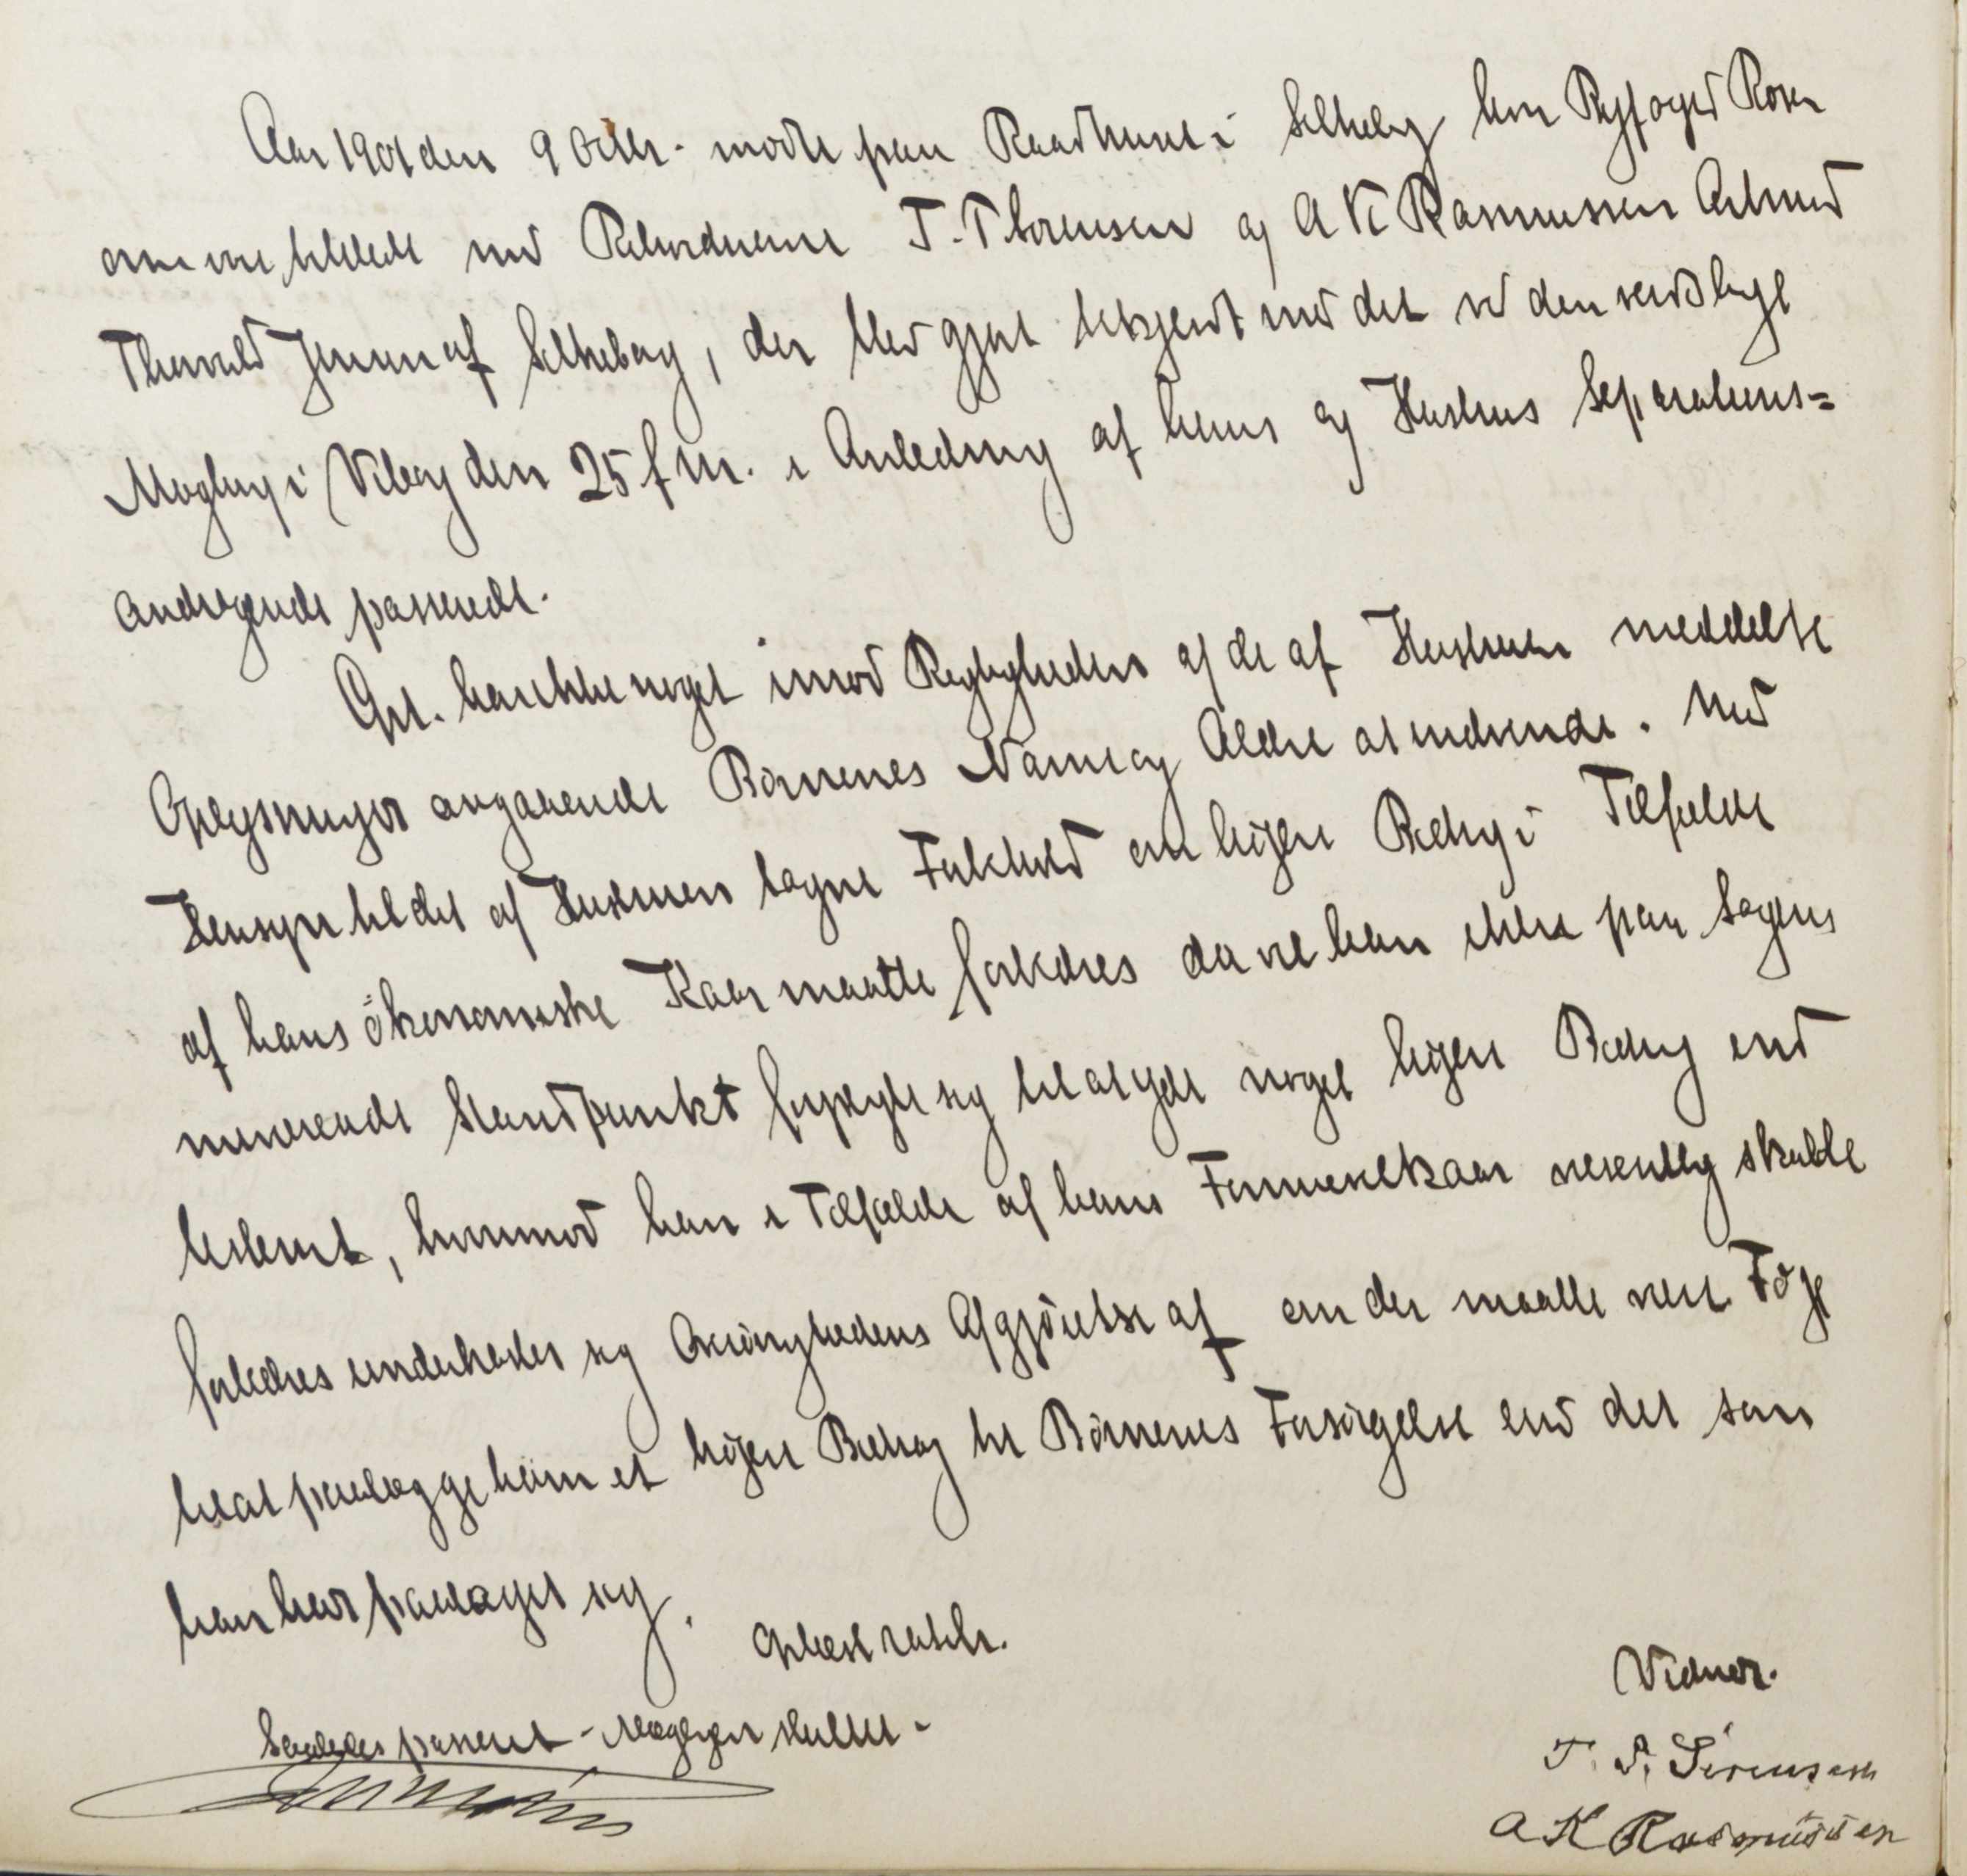 Aar 1901 den 9 Octbr. mødte paa Raadhuset i Silkeborg for Byfoged Rosen
som var tilstede med Retsvidnerne T. P. Sørensen og A K Rasmussen Arbmd
Thorvald Jensen af Silkeborg, der blev gjort bekjendt med det ved den verdslige
Mægling i Viborg den 25 f. M. i Anledning af hans og Hustrus Separations=
andragende passerede.
Cpt. har ikke noget imod Rigtigheden af de af Hustruen meddelte
Oplysninger angaaende Børnenes Navne og Alder at indvende. Med
Hensyn til det af Hustruen tagne Forbehold om højere Bidrag i Tilfælde
af hans økonomiske Kaar maatte forbedres da vil han ikke paa Sagens
nuværende Standpunkt forpligte sig til at yde noget højere Bidrag end
bestemt, hvorimod han i Tilfælde af hans Formueskaar væsentlig skulde
forbedres underkaster sig Øvrighedens Afgjørelse af om der maatte være Føje
til at paalægge ham et højere Bidrag til Børnenes Forsørgelse end det som
han har paataget sig.
Oplæst vedtaget.
Saaledes passeret - Mæglingen sluttet -
Vidner.
T. P. Sørensen
A K Rasmussen